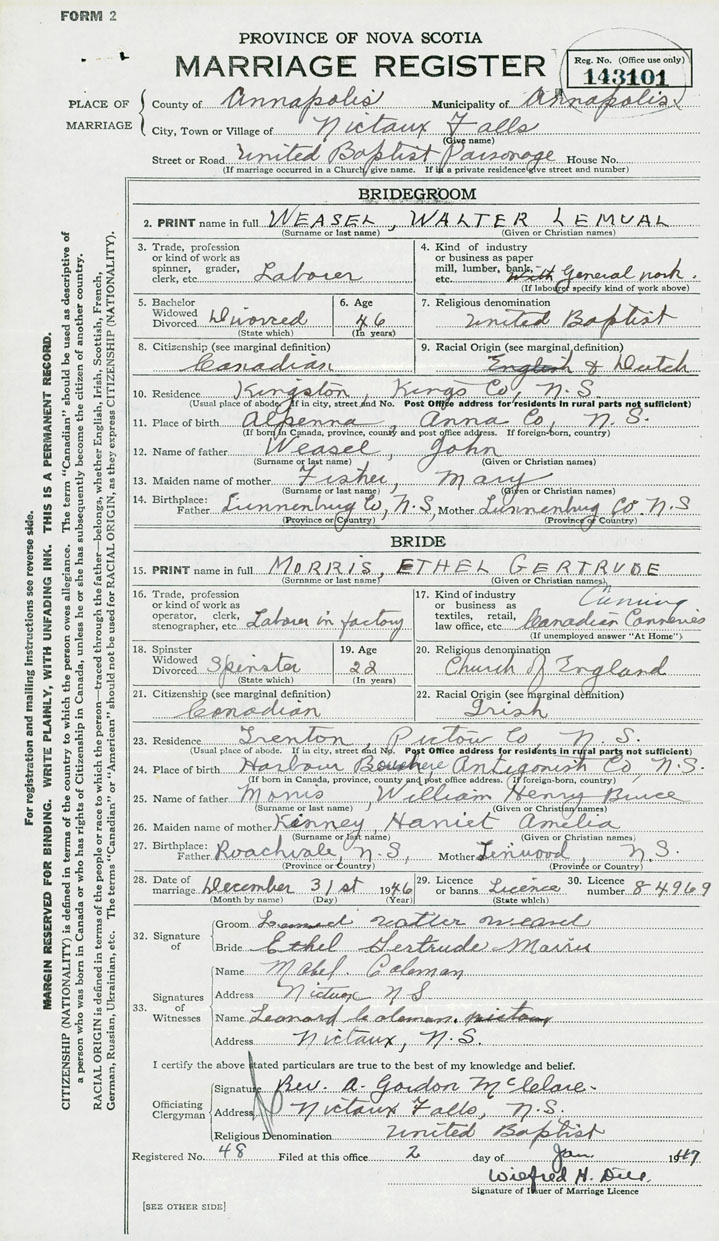 FORM 2
PROVINCE OF NOVA SCOTIA
MARRIAGE REGISTER
Reg. No. (Office use only)
143101
PLACE OF MARRIAGE
County of Annapolis Municipality of Annapolis
City, Town or Village of Nictaux Falls
(Give name)
Street or Road United Baptist Parsonage House No.
(If marriage occurred in a Church, give name. If in a private residence give street and number)
BRIDEGROOM
2. PRINT name in full WEASEL, WALTER LEMUAL
(Surname or last name) (Given or Christian names)
3. Trade, profession or kind of work as spinner, grader, clerk, etc. Laborer
4. Kind of industry or business as paper mill, lumber, bank, etc. General work.
(If labourer specify kind of work above)
5. Bachelor Widowed Divorced Divorced
(State which)
6. Age 46
(In years)
7. Religious denomination United Baptist
8. Citizenship (see marginal definition) Canadian
9. Racial Origin (see marginal definition) English & Dutch
10. Residence Kingston, Kings Co, N.S
(Usual place of abode. If in city, street and No. Post Office address for residents in rural parts not sufficient)
11. Place of birth Alpenna, Anna Co, N.S.
(If born in Canada, province, county and post office address. If foreign-born, country)
12. Name of father Weasel, John
(Surname or last name) (Given or Christian names)
13. Maiden name of mother Fisher, Mary
(Surname or last name) (Given or Christian names)
14. Birthplace: Father Lunnenburg Co, N.S, Mother Lunnenburg Co. N.S
(Province or Country) (Province or Country)
BRIDE
15. PRINT name in full MORRIS, ETHEL GERTRUDE
(Surname or last name) (Given or Christian names)
16. Trade, profession or kind of work as operator, clerk, stenographer, etc. Laborer in factory
17. Kind of industry or business as textiles, retail, law office, etc. Canning Canadian Canneries
(If unemployed answer "At Home")
18. Spinster Widowed Divorced Spinster
(State which)
19. Age 22
(In years)
20. Religious denomination Church of England
21. Citizenship (see marginal definition) Canadian
22. Racial Origin (see marginal definition) Irish
23. Residence Trenton, Pictou Co N.S.
(Usual place of abode. If in city, street and No. Post Office address for residents in rural parts not sufficient)
24. Place of birth Harbour Bouchere Antigonish Co, N.S.
(If born in Canada, province, county and post office address. If foreign-born, country)
25. Name of father Morris, William Henry Bruce
(Surname or last name) (Given or Christian names)
26. Maiden name of mother Kinney, Harriet Amelia
(Surname or last name) (Given or Christian names)
27. Birthplace: Father Roachvale, N.S, Mother Linwood, N.S.
(Province or Country) (Province or Country)
28. Date of marriage December 31st 1946
(Month by name) (Day) (Year)
29. Licence or banns Licence
(State which)
30. Licence number 84969
32. Signature of
Groom Weasel
Bride Ethel Gertrude Morris
33. Signatures of Witnesses
Name Mabel Coleman
Address Nictaux N S
Name Leonard Coleman.
Address Nictaux, N.S.
I certify the above stated particulars are true to the best of my knowledge and belief.
Officiating Clergyman
Signature Rev. A. Gordon McClelare
Address Nictaux Falls, N.S.
Religious Denomination United Baptist
Registered No. 48 Filed at this office 2 day of Jan 1947
Wilfred H. Dill.
Signature of Issuer of Marriage Licence
[SEE OTHER SIDE]
For registration and mailing instructions see reverse side.
MARGIN RESERVED FOR BINDING. WRITE PLAINLY, WITH UNFADING INK. THIS IS A PERMANENT RECORD.
CITIZENSHIP (NATIONALITY) is defined in terms of the country to which the person owes allegiance. The term "Canadian" should be used as descriptive of
a person who was born in Canada or who has rights of Citizenship in Canada, unless he or she has subsequently become the citizen of another country.
RACIAL ORIGIN is defined in terms of the people or race to which the person—traced through the father—belongs, whether English, Irish, Scottish, French,
German, Russian, Ukrainian, etc. The terms "Canadian" or "American" should not be used for RACIAL ORIGIN, as they express CITIZENSHIP (NATIONALITY).